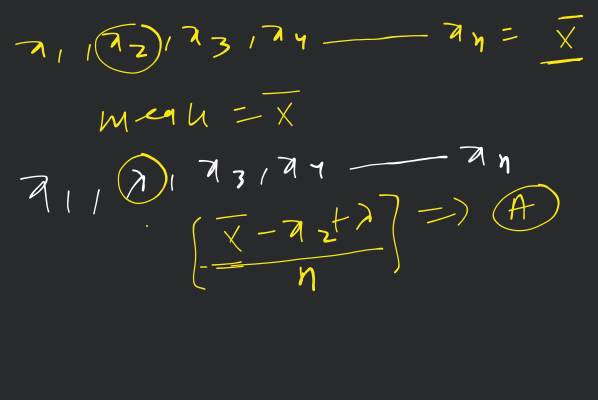 x₁, x₂, x₃, x₄ —— xₙ = x̄
mean = x̄
x₁, λ, x₃, x₄ —— xₙ
[(x̄ - x₂ + λ)/n] => A